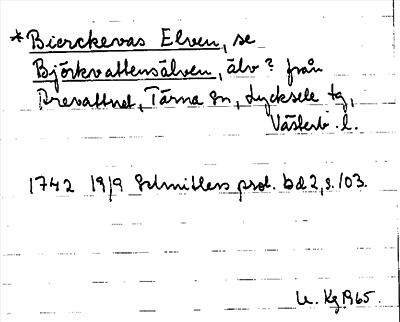 *Bierckevas Elven, se
Björkvattensälven, älv? från
Arevattnet, Tärna sn, Lycksele tg,
Västerb. l.
1742 19/9 Schnitlers prot. bd 2, s. 103.
U. Kg R 65.